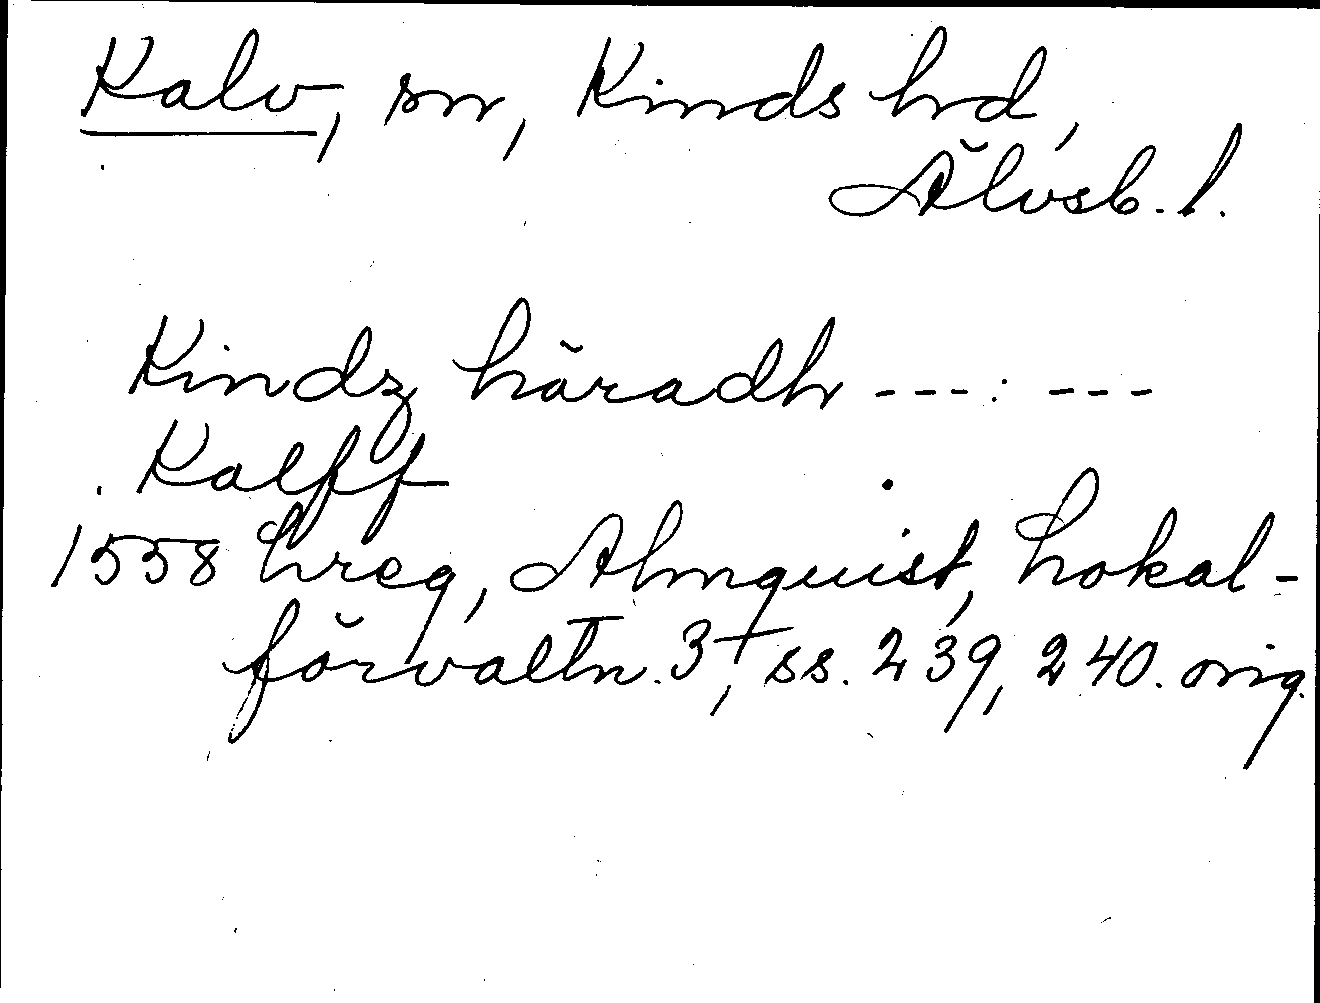 Kalv, sn, Kinds hd,
Älvsb. l.
Kindz häradh ---:---
Kalff
1558 Lreg, Almquist, Lokal-
förvaltn. 3, ss. 239, 240. orig.